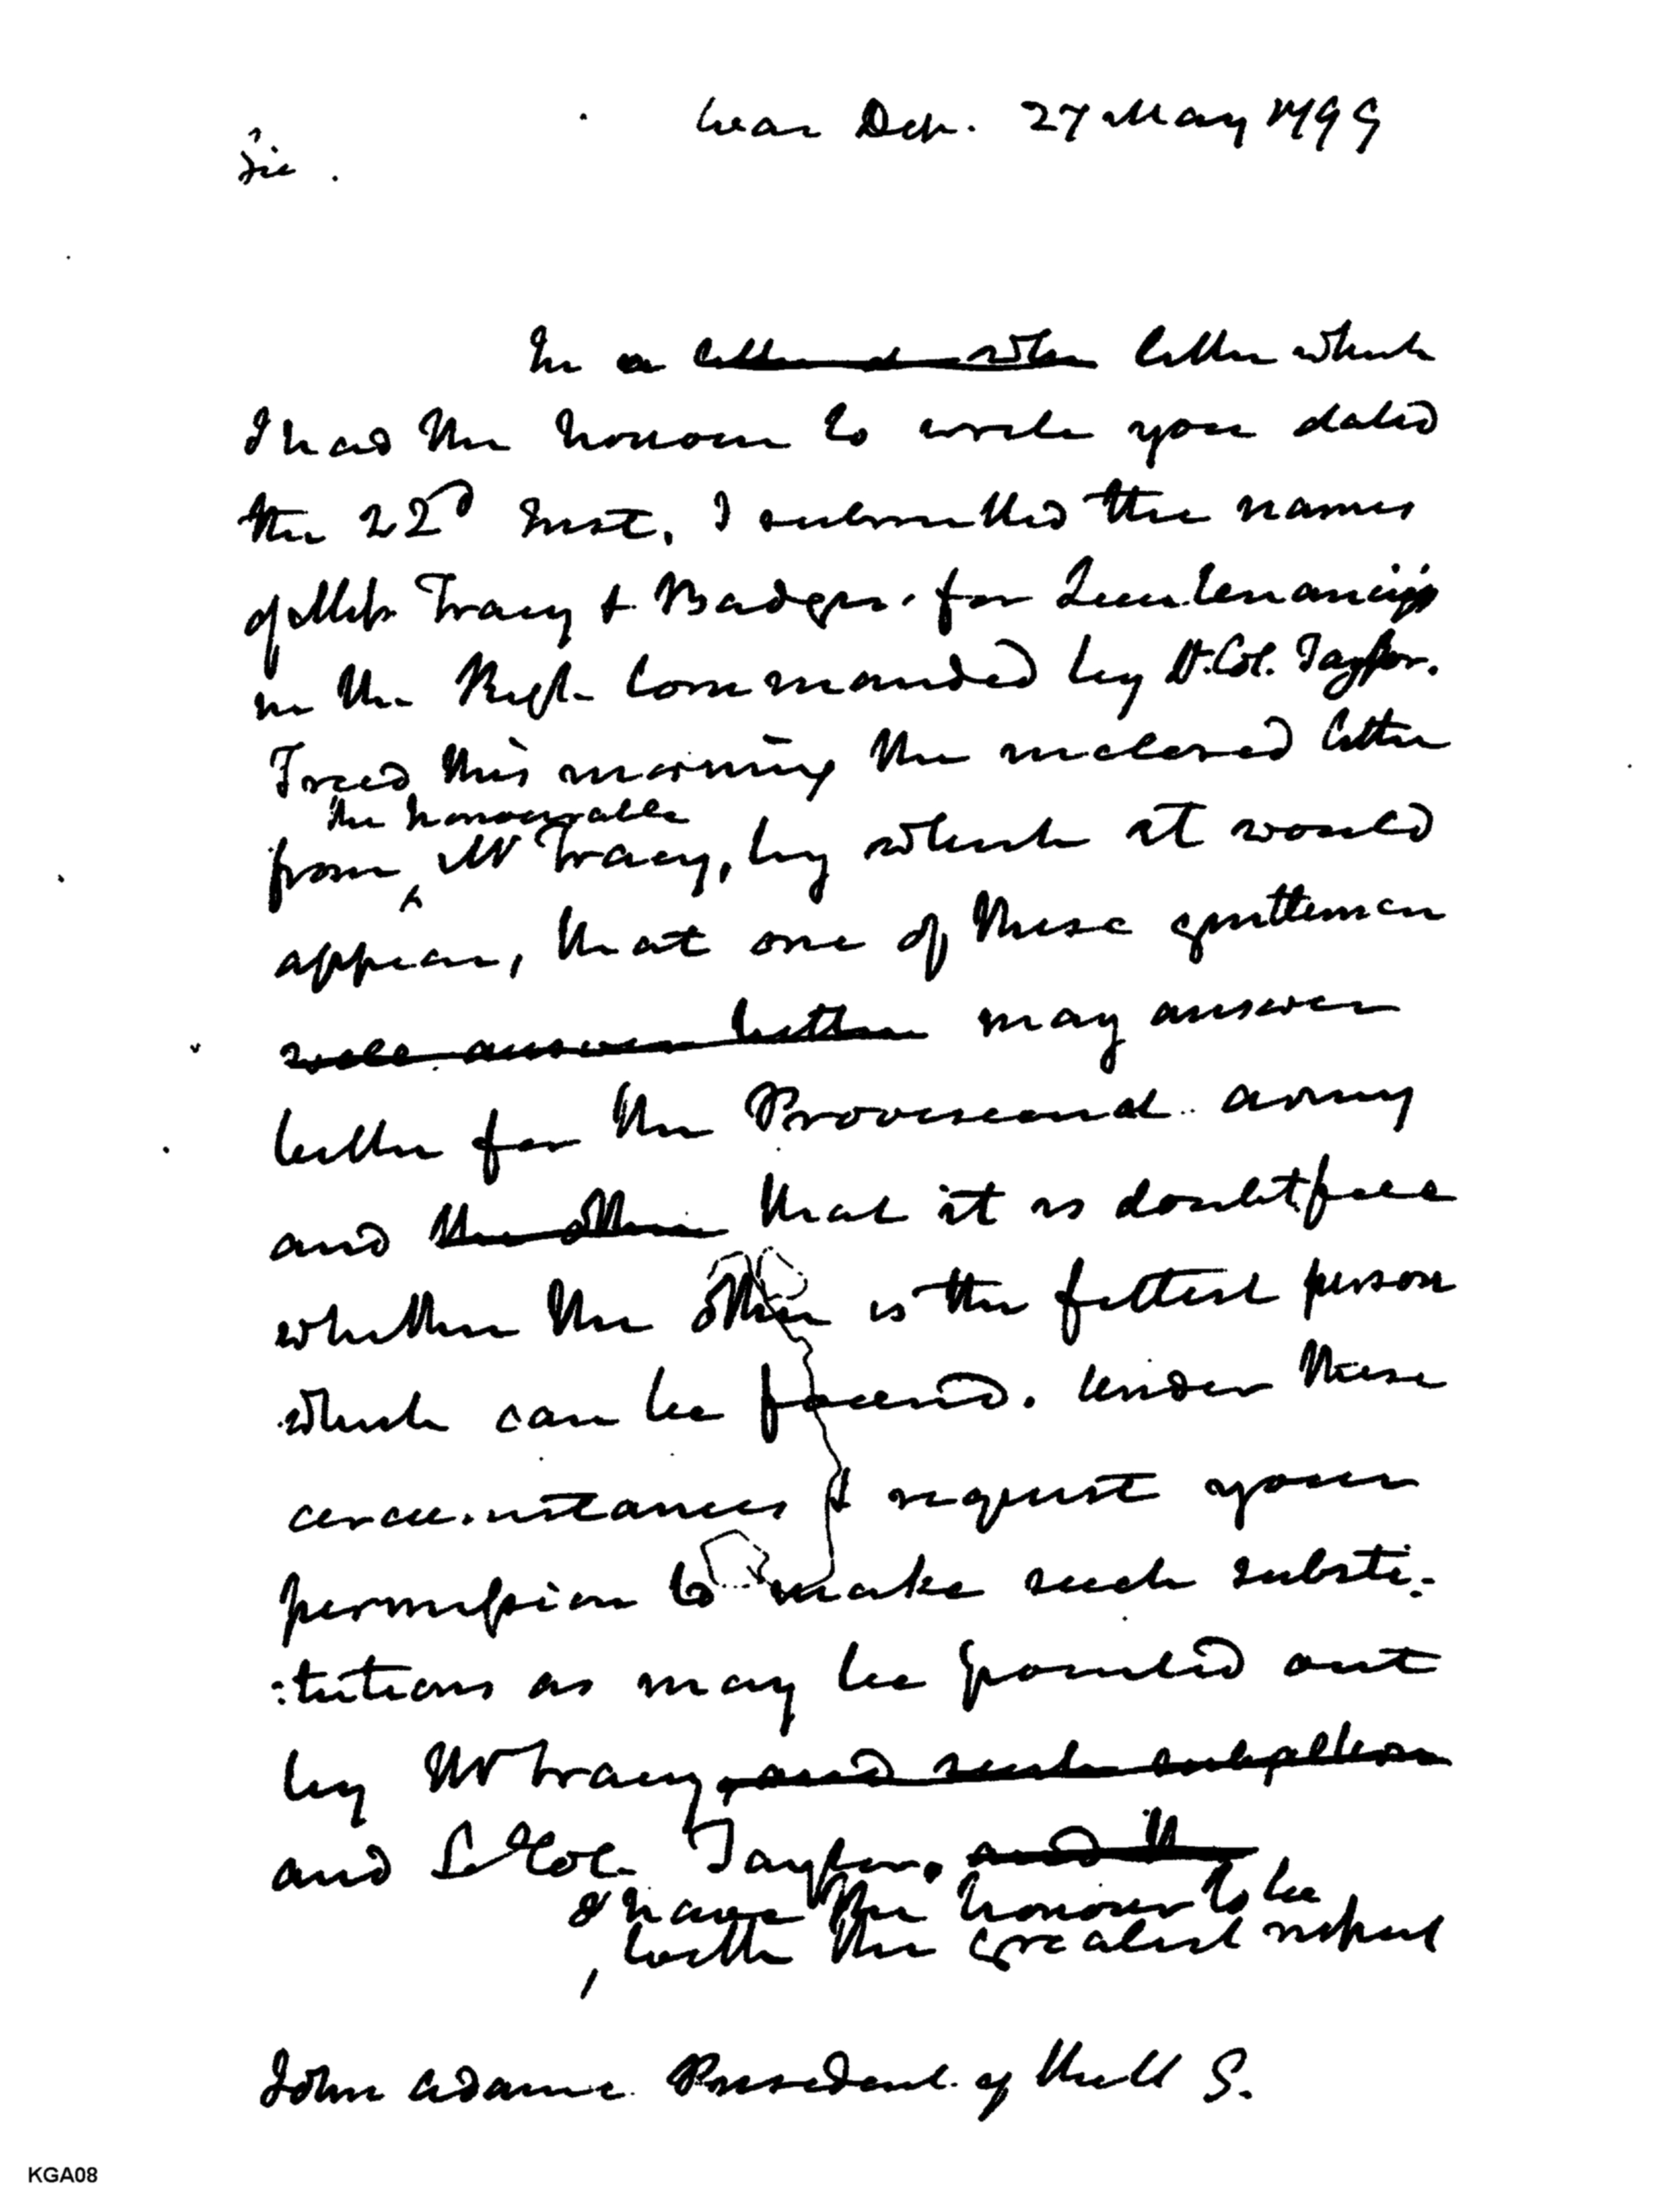 War Dep. 27 May 1799
Sir.
In a letter which
I had the honour to write you dated
the 22d Inst. I submitted the names
of Messrs Tracy & Badger. for Lieutenancies
in the Regt. commanded by Lt. Col. Taylor.
I recd this morning the inclosed letter
the honourable
from ^ Mr Tracy, by which it would
appear, that one of these gentlemen
will answer better may answer
better for the Provisional army
and the other that it is doubtfull
whether the other is the fittest person
which can be found. Under these
circumstances I request your
permission to make such substi-
:tutions as may be pointed out
by Mr Tracy and such
and Lt Col. Taylor. and th
I have the honour to be
with the greatest respect
John Adams President of the U S.
KGA08